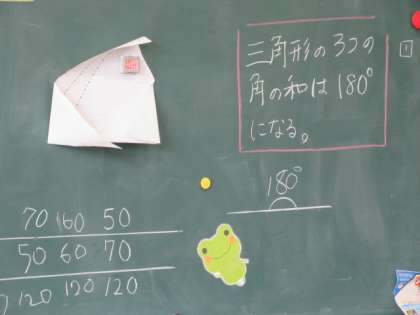 三角形の3つの
角の和は180°
になる。
1
180°
70 160 50
50 60 70
120 120 120